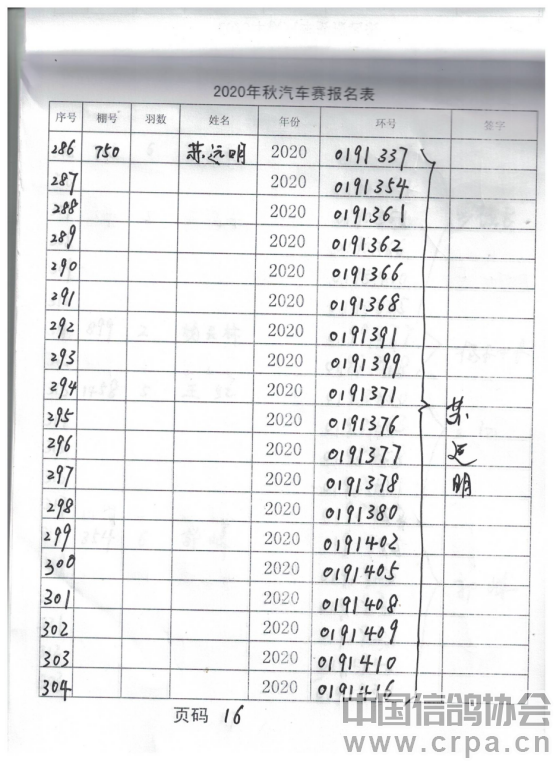 2020年秋汽车赛报名表
序号 棚号 羽数 姓名 年份 环号 签字
286 750 苏远明 2020 0191337
287 2020 0191354
288 2020 0191361
289 2020 0191362
290 2020 0191366
291 2020 0191368
292 2020 0191391
293 2020 0191399
294 2020 0191371
295 2020 0191376
296 2020 0191377
297 2020 0191378
298 2020 0191380
299 2020 0191402
300 2020 0191405
301 2020 0191408
302 2020 0191409
303 2020 0191410
304 2020 0191416
苏远明
页码 16
中国信鸽协会
www.crpa.cn